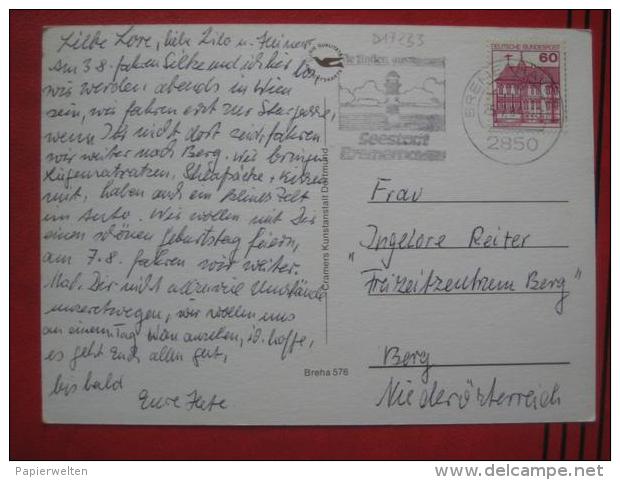 Liebe Lore, liebe Lilo u. Heiner!
Am 3.8. fahren Silke und ich hier los
wir werden abends in Wien
sein, wir fahren erst zur
wenn Ihr nicht dort seid, fahren
wir weiter nach Berg. Wir bringen
Schlafsäcke + Kissen
mit, haben auch ein kleines Zelt
im Auto. Wir wollen mit Dir
einen schönen Geburtstag feiern,
am 7.8. fahren wir weiter.
Mach Dir nicht allzuviel Umstände
unseretwegen, wir wollen uns
an einem Tag Wien ansehen, ich hoffe,
es geht Euch allen gut,
bis bald
Eure
Cramers Kunstanstalt Dortmund
Breha 576
D17233
Seestadt
Bremerhaven
DEUTSCHE BUNDESPOST
60
2850
Frau
Ingelore Reiter
"Freizeitzentrum Berg"
Berg
Niederösterreich
© Papierwelten
www.delcampe.net